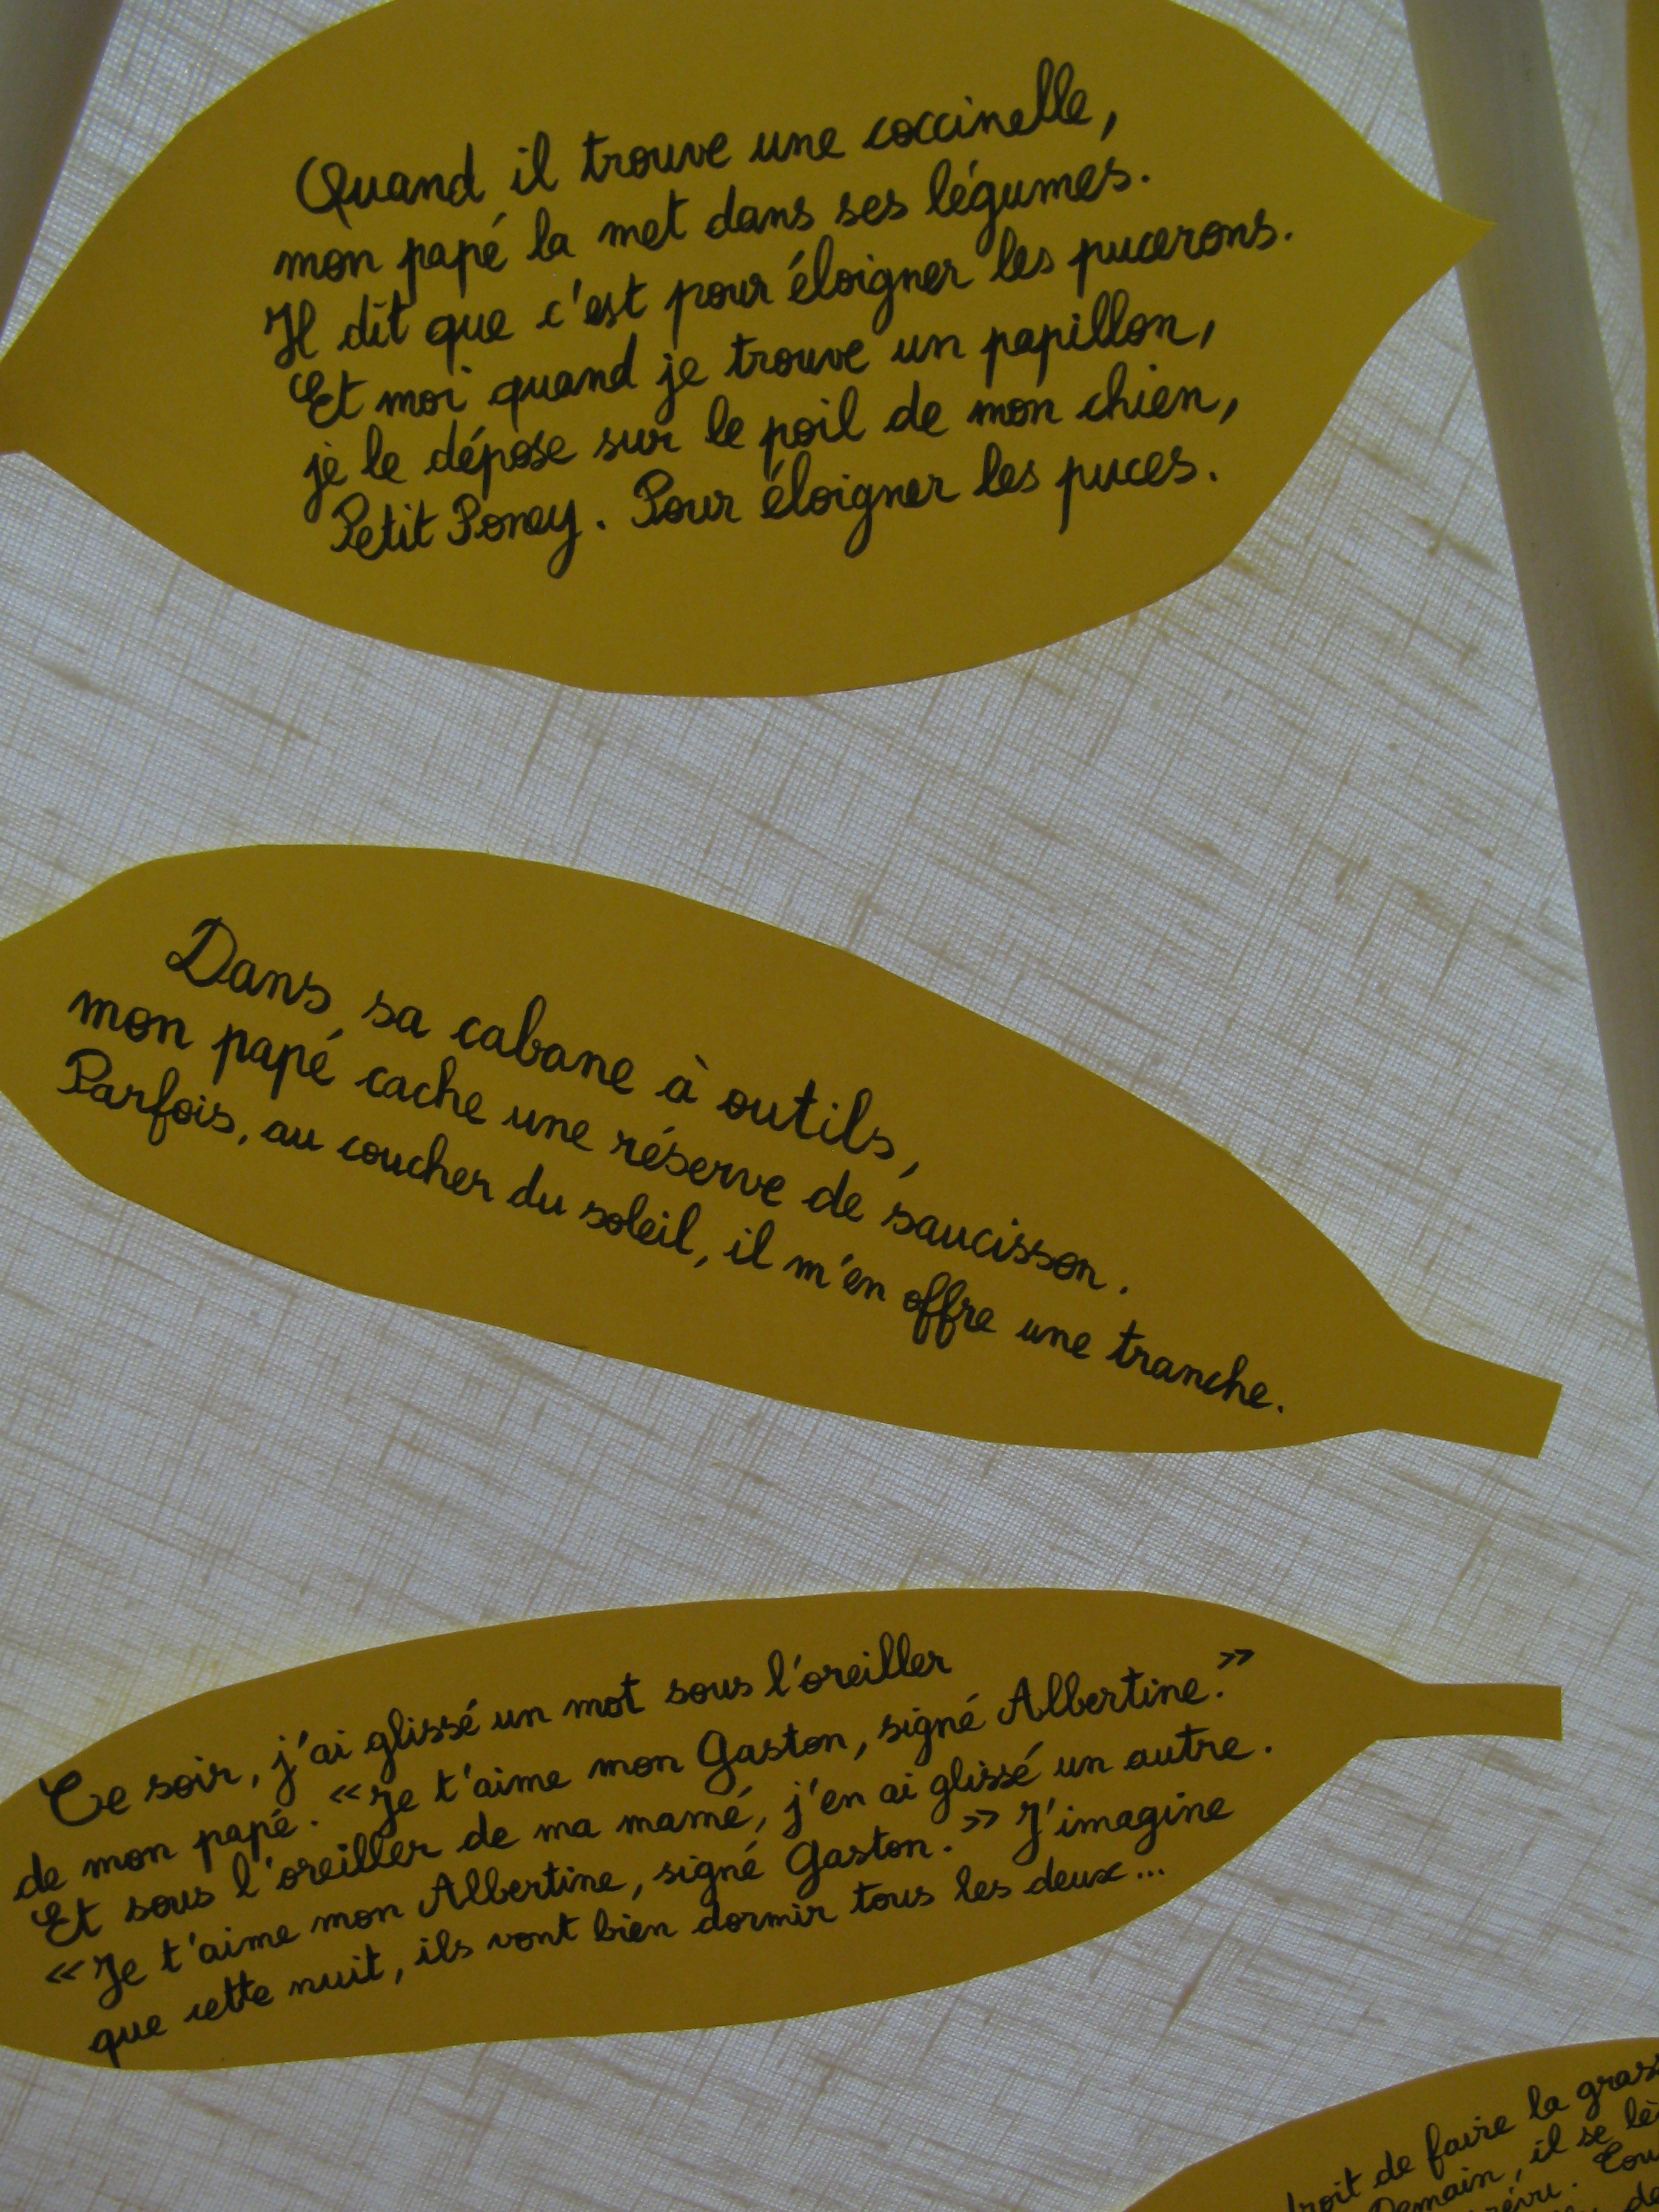 Quand il trouve une coccinelle,
mon papé la met dans ses légumes.
Il dit que c'est pour éloigner les pucerons.
Et moi quand je trouve un papillon,
je le dépose sur le poil de mon chien,
Petit Poney. Pour éloigner les puces.
Dans sa cabane à outils,
mon papé cache une réserve de saucisson.
Parfois, au coucher du soleil, il m'en offre une tranche.
Ce soir, j'ai glissé un mot sous l'oreiller
de mon papé. «Je t'aime mon Gaston, signé Albertine.»
Et sous l'oreiller de ma mamé, j'en ai glissé un autre.
«Je t'aime mon Albertine, signé Gaston.» J'imagine
que cette nuit, ils vont bien dormir tous les deux...
de faire la
Demain, il se